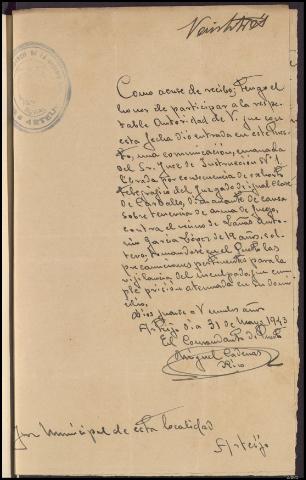 Veintitrés
Como acuse de recibo, tengo el
honor de participar a la respe-
table Autoridad de V. que con
esta fecha dió entrada en este Pues-
to, una comunicación, emanada
del Sr. Juez de Instrucción Nº 1
Coruña por consecuencia de exhorto
telegráfico del Juzgado de igual clase
de Carballo, dimanante de causa
sobre tenencia de arma de fuego,
contra el vecino de Lañas Anto-
nio García López de años, sol-
tero, tomandose en el Puesto las
precauciones pertinentes para la
vigilancia del inculpado, que cum-
ple prisión atenuada en su domi-
cilio.
Dios guarde a V. muchos años
Arteijo día 31 de Mayo 1943
El Comandante de Puesto
Miguel Cadenas
Rico
Juez Municipal de esta localidad
Arteijo